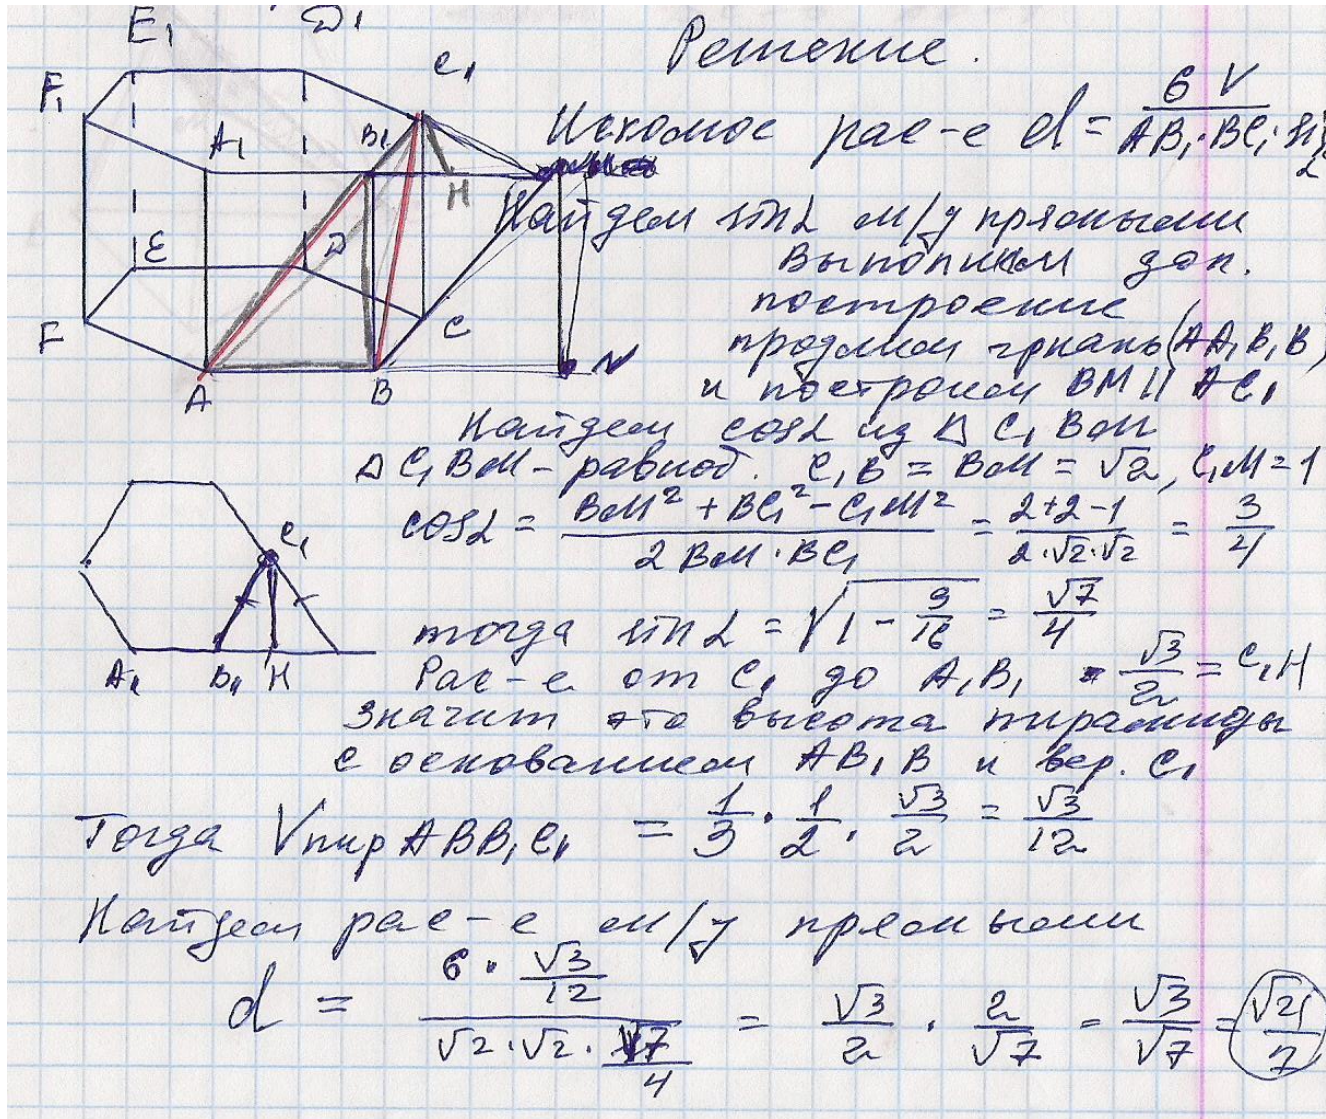 E₁ D₁
Решение.
F₁ C₁
A₁ B₁
Искомое рас-е d = 6V / AB₁·BC₁·sin α
H
Найдем sin α м/у прямыми
E D
Выполним доп.
построение
F C
продлим грань (AA₁B₁B)
A B N
и построим BM || AC₁
Найдем cos α из Δ C₁BM
Δ C₁BM – равноб. C₁B = BM = √2, C₁M = 1
cos α = (BM² + BC₁² – C₁M²) / (2BM·BC₁) = (2+2–1) / (2·√2·√2) = 3/4
C₁
тогда sin α = √(1 – 9/16) = √7/4
A₁ B₁ H
Рас-е от C₁ до A₁B₁ = √3/2 = C₁H
значит это высота пирамиды
с основанием AB₁B и вер. C₁
Тогда Vпир ABB₁C₁ = 1/3 · 1/2 · √3/2 = √3/12
Найдем рас-е м/у прямыми
d = (6 · √3/12) / (√2·√2·√7/4) = √3/2 · 2/√7 = √3/√7 = √21/7